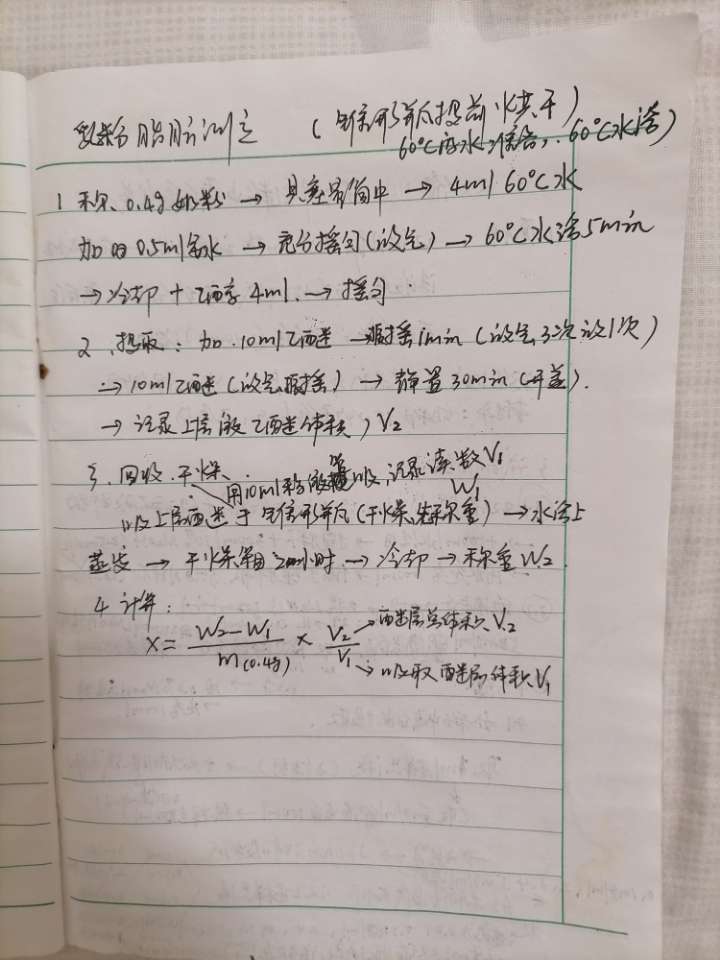 乳粉脂肪测定 (锥形瓶提前火共干)
60℃度水,
60℃水浴)
1 称、0.4g奶粉 → 具塞量筒中 → 4ml 60℃水
加 0.5ml氨水 → 充分摇匀(放气) → 60℃水浴5min
→冷却+乙醇4ml. → 摇匀.
2、提取: 加.10ml乙醚 →振摇1min (放气,3次放1次)
→10ml乙醚(放气,振摇) → 静置30min(开盖).
→ 记录上层液乙醚体积, V2
3. 回收.干燥、
用10ml移液管吸,记录读数V1
W1
吸上层醚于锥形瓶(干燥,先称重) → 水浴上
蒸发 → 干燥箱2小时 → 冷却 → 称重W2.
4 计算:
X= W2-W1 / m(0.4g) × V2 / V1
→醚层总体积、V2
→吸取醚层体积V1